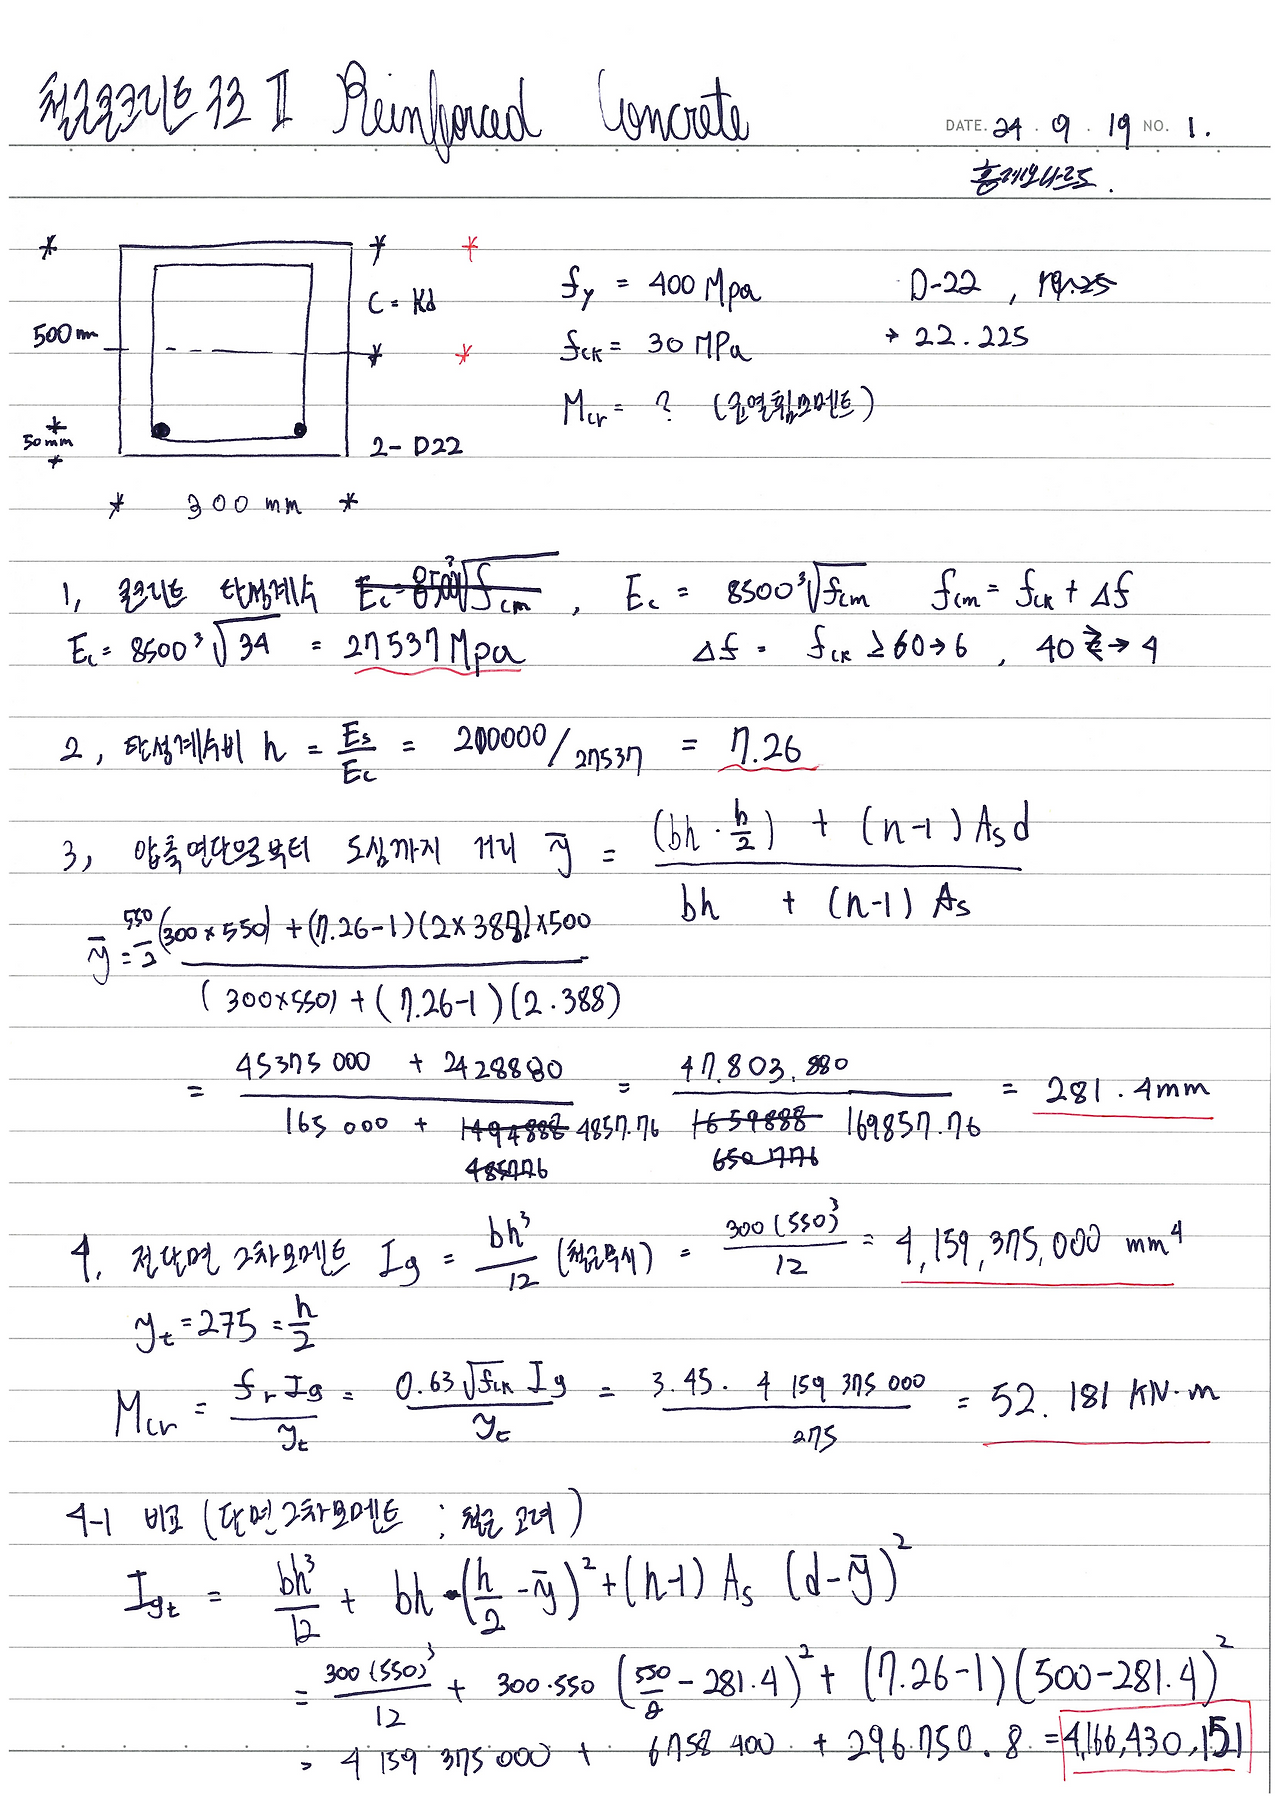 철근콘크리트 구조 II Reinforced Concrete
DATE. 24 . 9 . 19 NO. 1.
홍레오나르도.
500mm
C = Kd
50mm
2- D22
300 mm
fy = 400 Mpa
D-22 , 19.25
fck = 30 MPa
→ 22.225
Mcr = ? (균열휨모멘트)
1, 콘크리트 탄성계수 Ec = 8500³√fcm , Ec = 8500³√fcm fcm = fck + Δf
Ec = 8500³√34 = 27537 Mpa Δf = fck ≥ 60 → 6 , 40 ≥ → 4
2, 탄성계수비 n = Es/Ec = 200000/27537 = 7.26
3, 압축연단으로부터 도심까지 거리 ȳ = ((bh · h/2) + (n-1) As d) / (bh + (n-1) As)
ȳ = 550/2 (300 x 550) + (7.26-1)(2 x 388) x 500 / (300x550) + (7.26-1)(2.388)
= (45375 000 + 2428880) / (165 000 + 1494888 4857.76 485776) = 47.803.880 / (1659888 650776 169857.76) = 281.4mm
4. 전단면 2차모멘트 Ig = bh³/12 (철근무시) = 300(550)³/12 = 4,159,375,000 mm⁴
yt = 275 = h/2
Mcr = fr Ig / yt = 0.63√fck Ig / yt = 3.45 . 4 159 375 000 / 275 = 52.181 KN·m
4-1 비교 (단면2차모멘트 ; 철근 고려)
Igt = bh³/12 + bh · (h/2 - ȳ)² + (n-1) As (d-ȳ)²
= 300(550)³/12 + 300·550 (550/2 - 281.4)² + (7.26-1)(500-281.4)²
= 4 159 375 000 + 6758 400 + 296.750.8 = 4,166,430,151